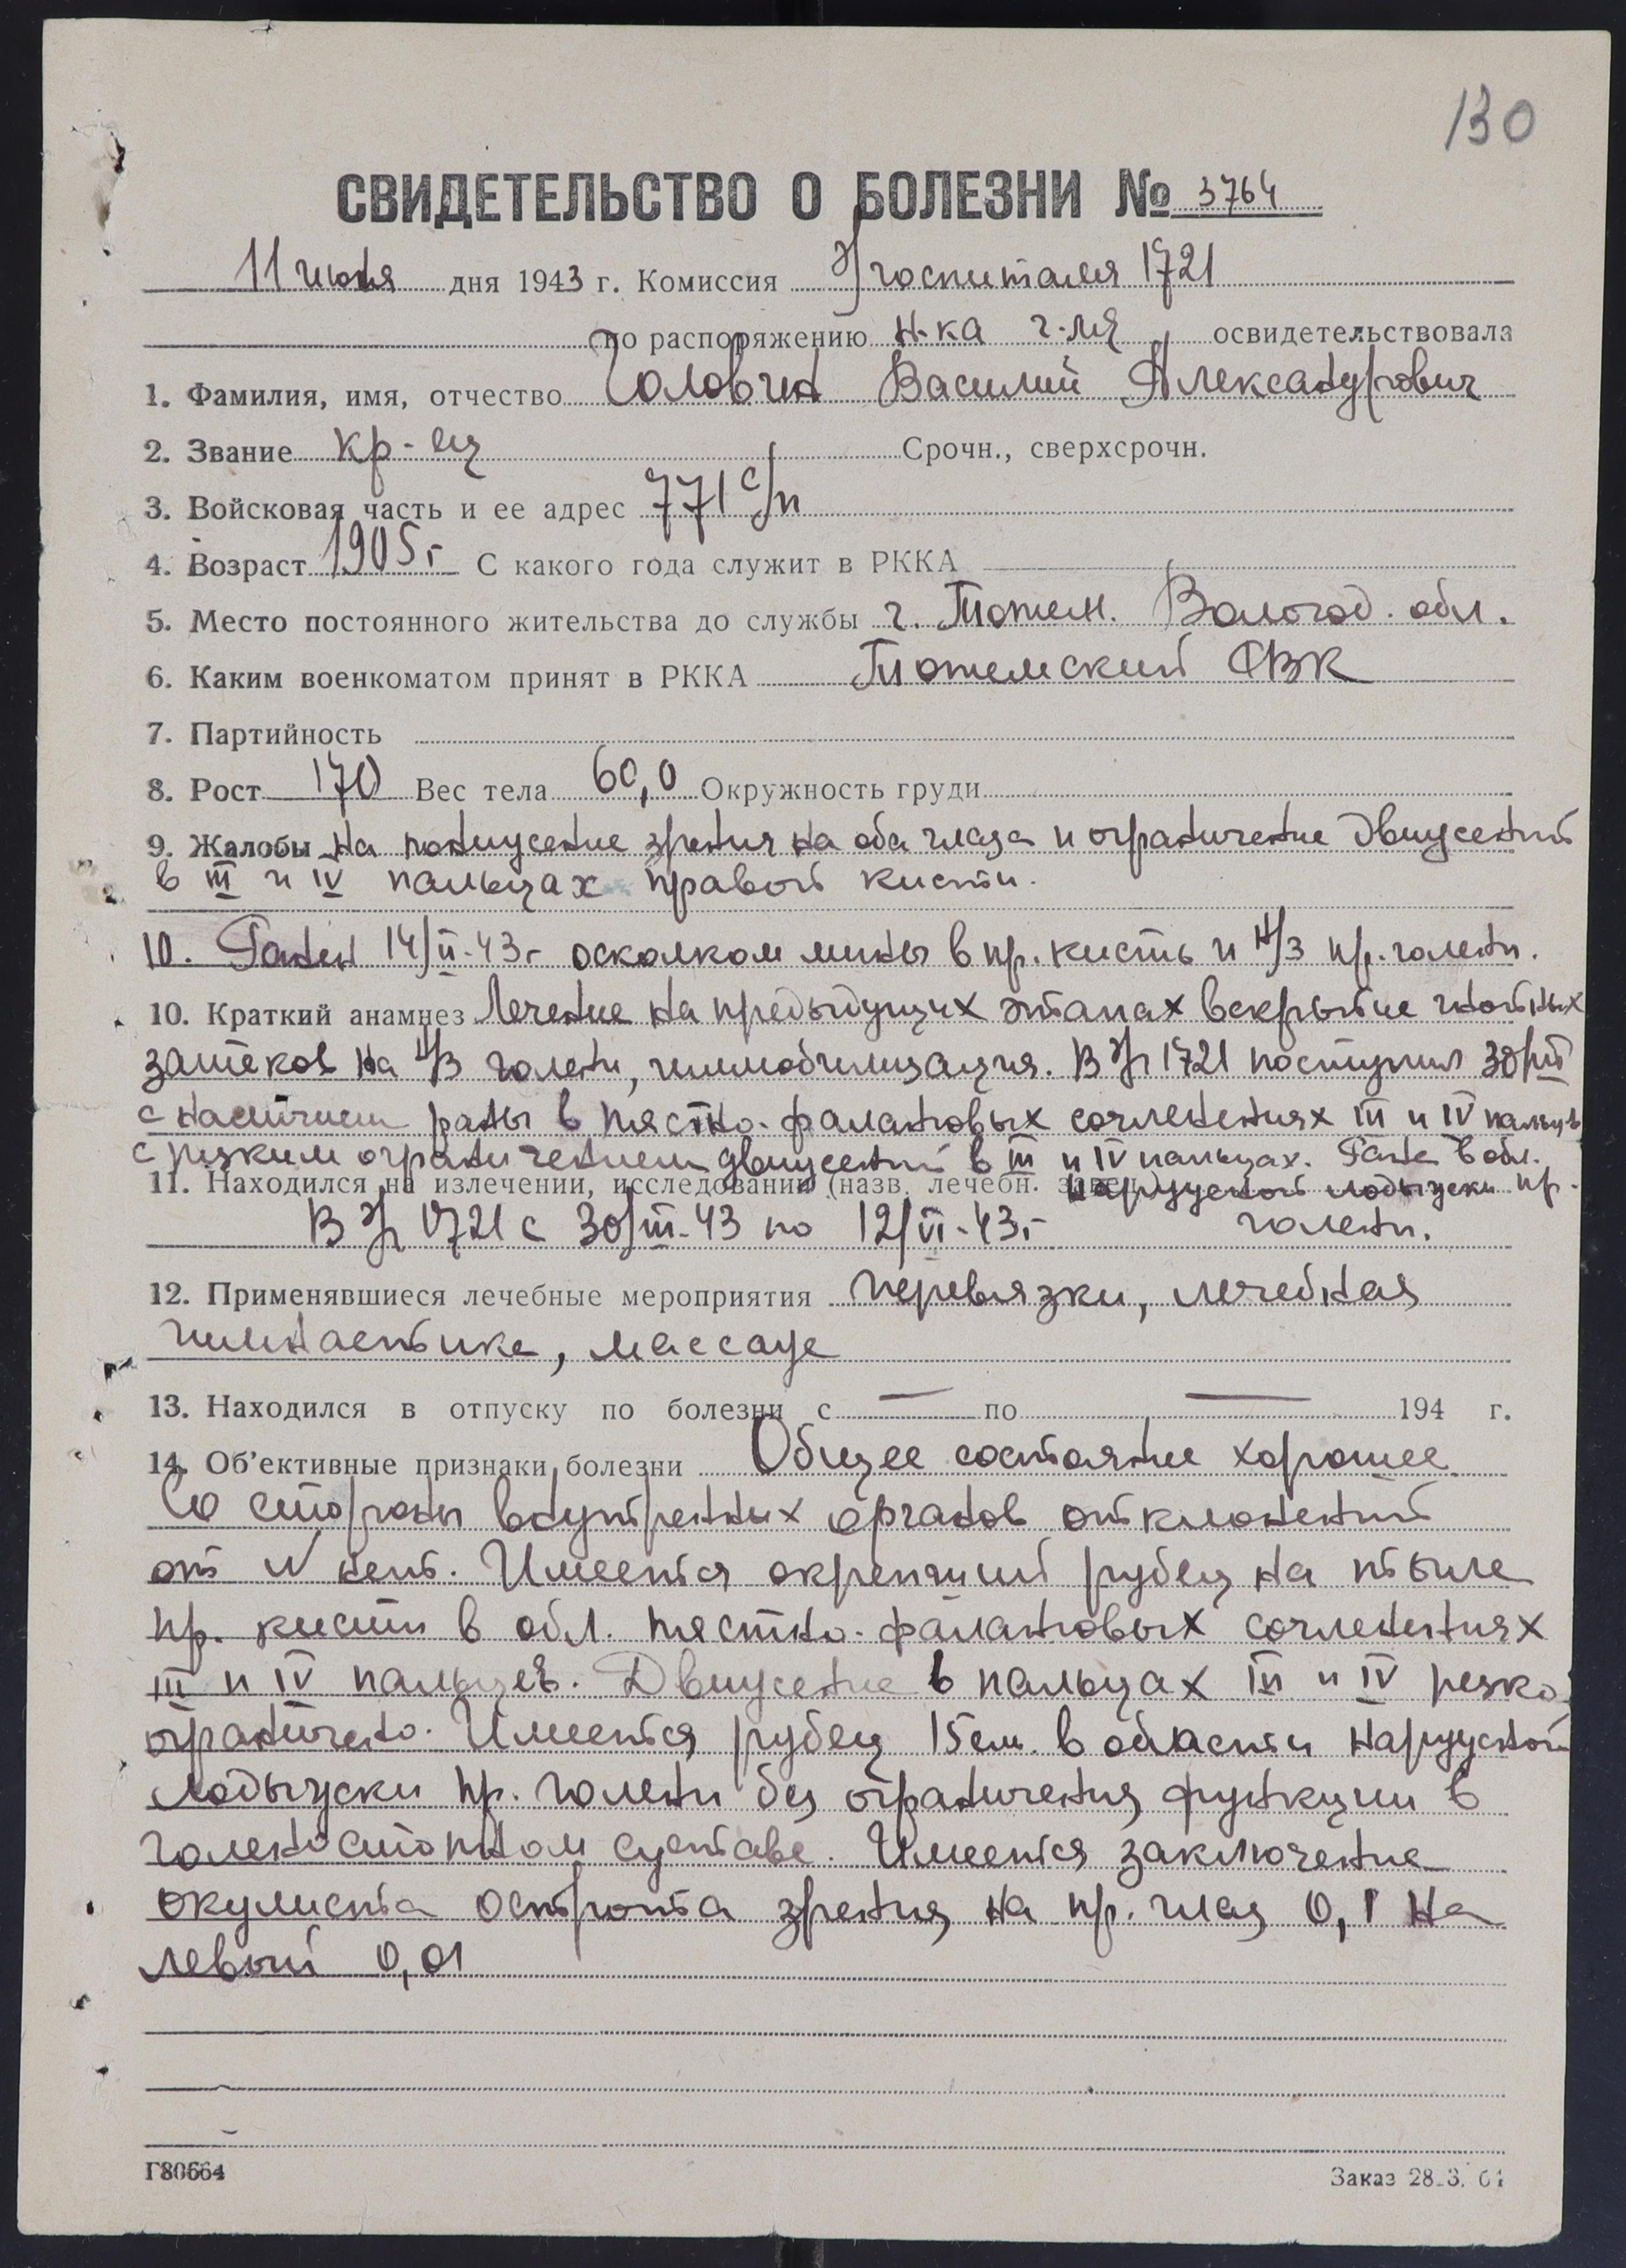 130
СВИДЕТЕЛЬСТВО О БОЛЕЗНИ № 3764
11 июня дня 1943 г. Комиссия э/госпиталя 1721
по распоряжению н-ка г-ля освидетельствовала
1. Фамилия, имя, отчество Головин Василий Александрович
2. Звание кр-ец Срочн., сверхсрочн.
3. Войсковая часть и ее адрес 771 с/п
4. Возраст 1905 г. С какого года служит в РККА
5. Место постоянного жительства до службы г. Тотем. Вологод. обл.
6. Каким военкоматом принят в РККА Тотемский РВК
7. Партийность
8. Рост 170 Вес тела 60,0 Окружность груди
9. Жалобы на понижение зрения на оба глаза и ограничение движений
в III и IV пальцах правой кисти.
10. Ранен 14/II-43 г. осколком мины в пр. кисть и н/3 пр. голени.
10. Краткий анамнез Лечение на предыдущих этапах вскрытие гнойных
затеков на н/3 голени, иммобилизация. В э/г 1721 поступил 30/III
с наличием раны в пястно-фаланговых сочленениях III и IV пальцев
с резким ограничением движений в III и IV пальцах. Рана в обл.
11. Находился на излечении, исследовании (назв. лечебн. завед. наружной лодыжки пр.
В э/г 1721 с 30/III-43 по 12/VI-43 г. голени.
12. Применявшиеся лечебные мероприятия перевязки, лечебная
гимнастика, массаж
13. Находился в отпуску по болезни с — по — 194 г.
14. Об'ективные признаки болезни Общее состояние хорошее
Со стороны внутренных органов отклонений
от N нет. Имеется окрепший рубец на тыле
пр. кисти в обл. пястно-фаланговых сочленениях
III и IV пальцев. Движение в пальцах III и IV резко
ограничено. Имеется рубец 15 см. в области наружной
лодыжки пр. голени без ограничения функции в
голеностопном суставе. Имеется заключение
окулиста острота зрения на пр. глаз 0,1 на
левый 0,01
Г80664
Заказ 28